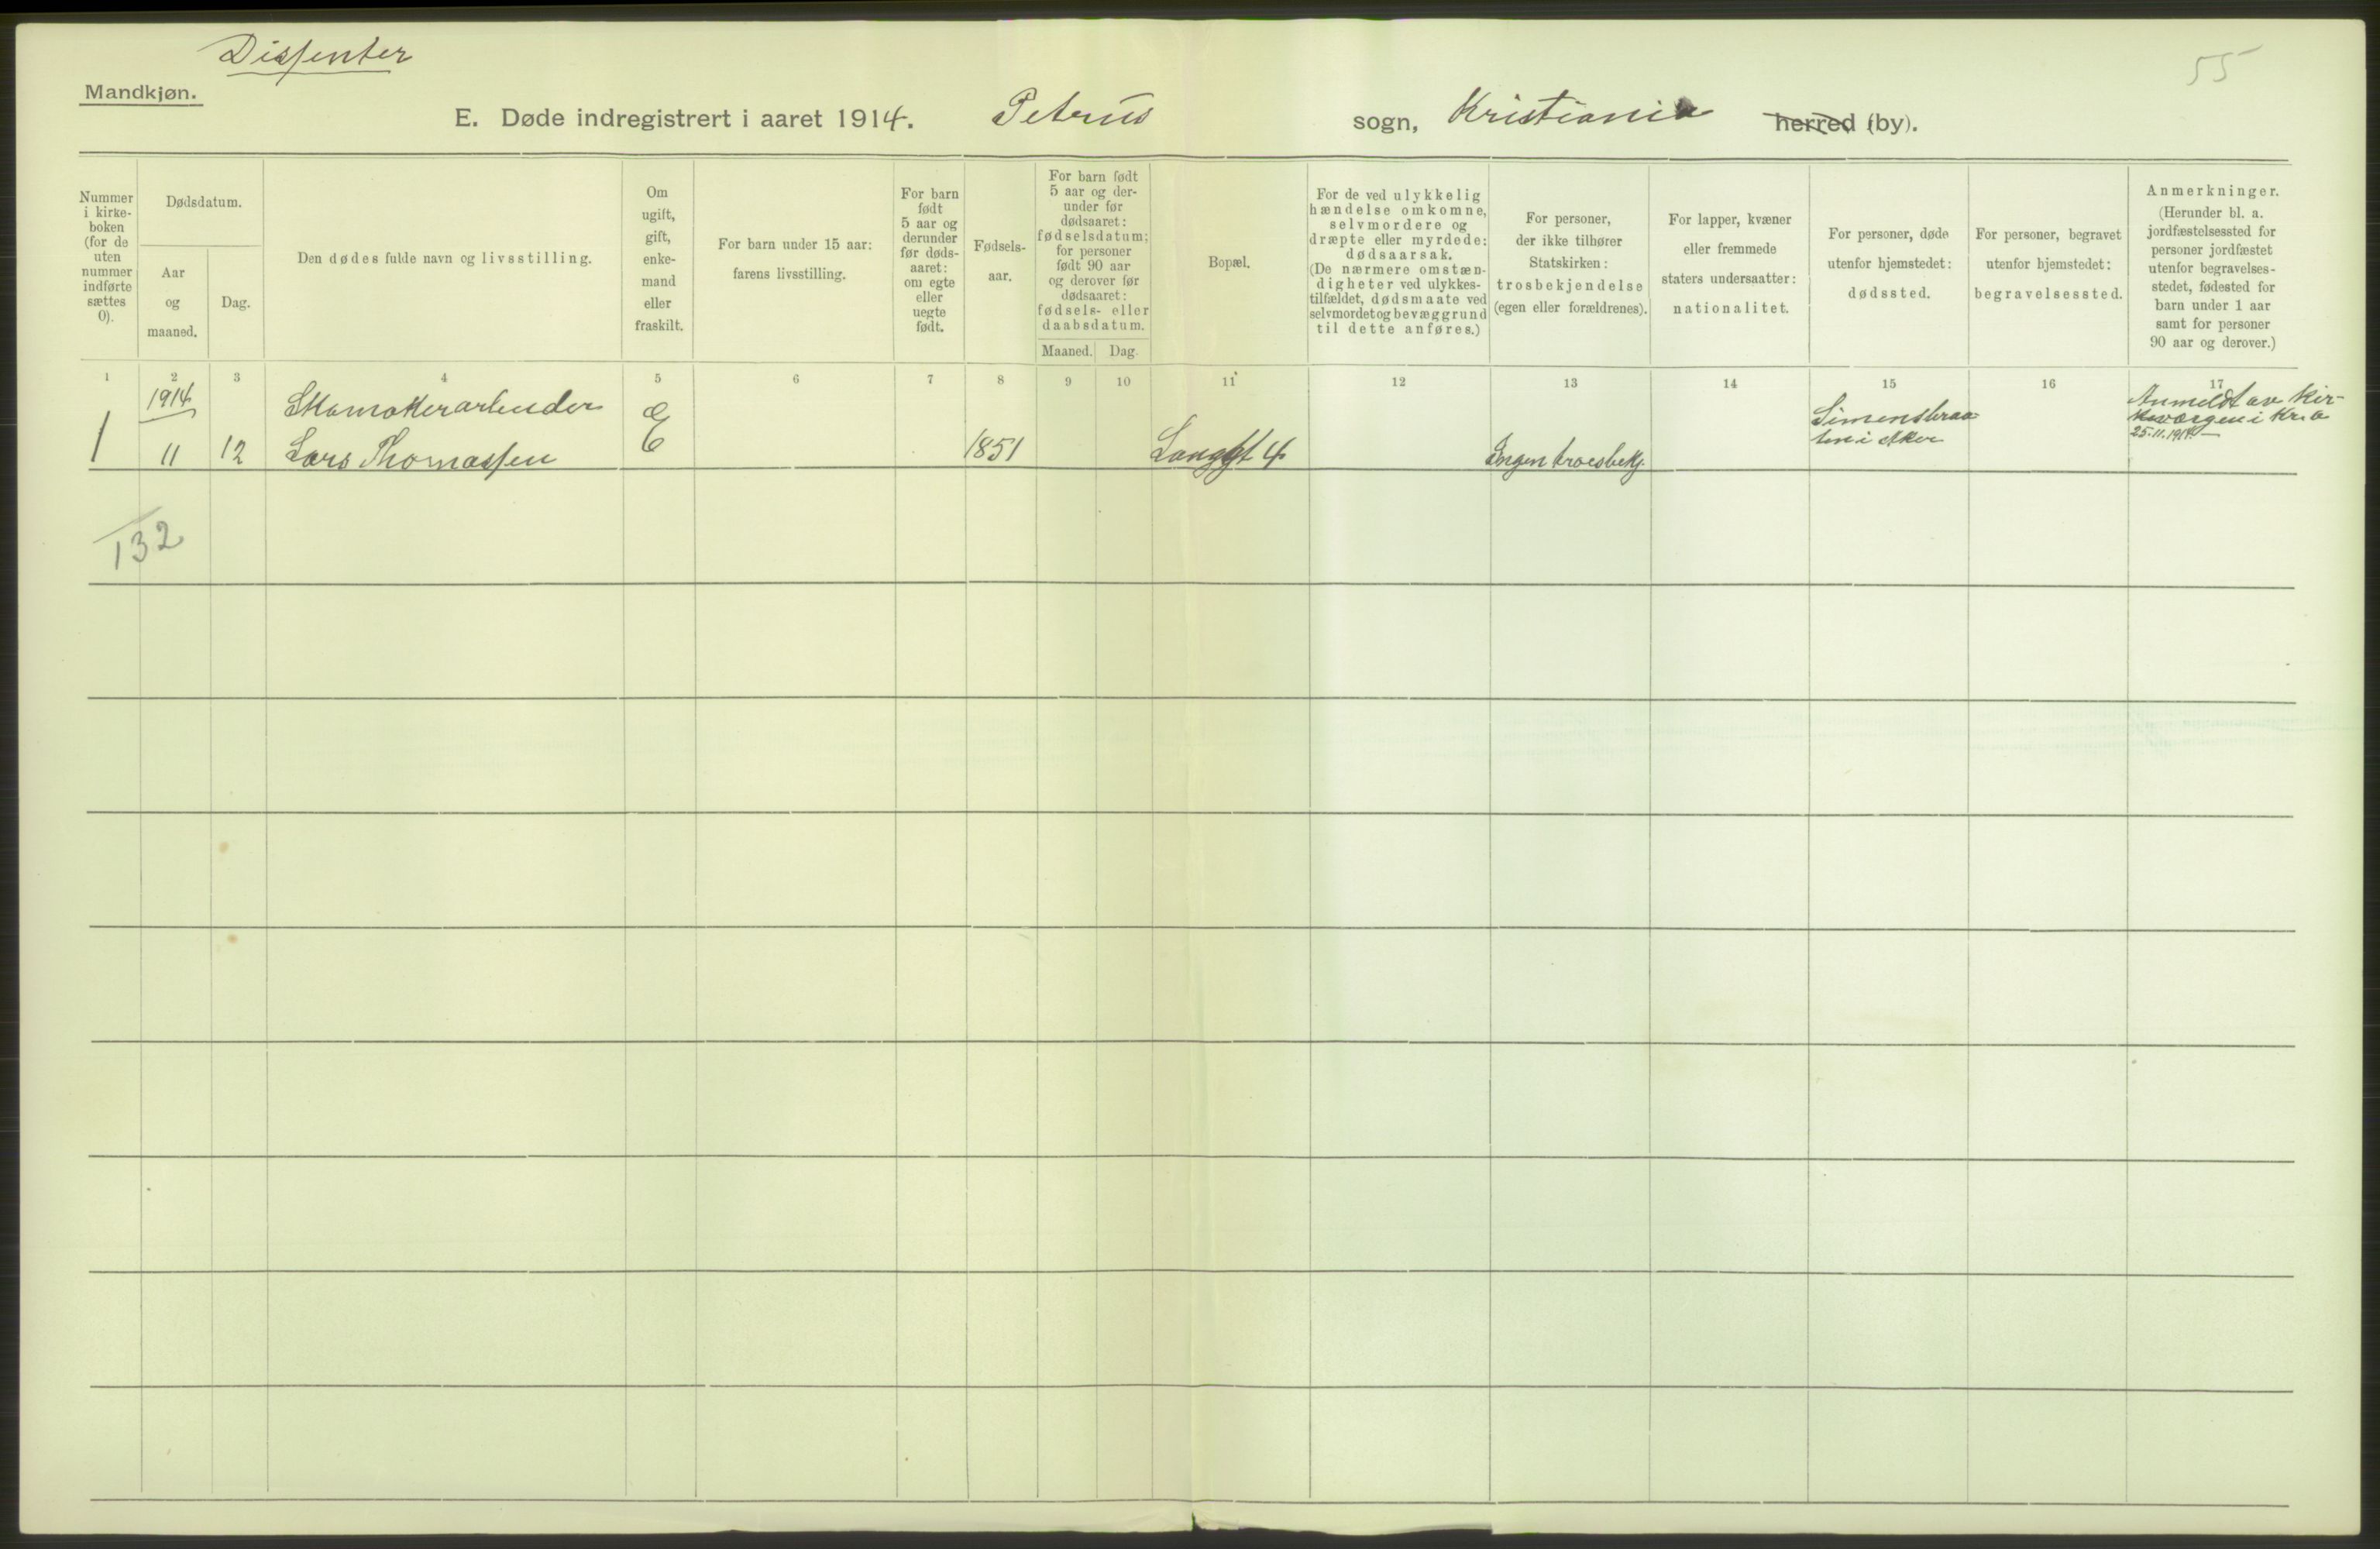 Dissenter
55
Mandkjøn.
E. Døde indregistrert i aaret 1914. Petrus sogn, Kristiania herred (by).
Nummer
i kirke-
boken
(for de
uten
nummer
indførte
sættes
0).
Dødsdatum.
Aar
og
maaned.
Dag.
Den dødes fulde navn og livsstilling.
Om
ugift,
gift,
enke-
mand
eller
fraskilt.
For barn under 15 aar:
farens livsstilling.
For barn
født
5 aar og
derunder
før døds-
aaret:
om egte
eller
uegte
født.
Fødsels-
aar.
For barn født
5 aar og der-
under før
dødsaaret:
fødselsdatum;
for personer
født 90 aar
og derover før
dødsaaret:
fødsels- eller
daabsdatum.
Maaned. Dag.
Bopæl.
For de ved ulykkelig
hændelse omkomne,
selvmordere og
dræpte eller myrdede:
dødsaarsak.
(De nærmere omstæn-
digheter ved ulykkes-
tilfældet, dødsmaate ved
selvmordet og bevæggrund
til dette anføres.)
For personer,
der ikke tilhører
Statskirken:
trosbekjendelse
(egen eller forældrenes).
For lapper, kvæner
eller fremmede
staters undersaatter:
nationalitet.
For personer, døde
utenfor hjemstedet:
dødssted.
For personer, begravet
utenfor hjemstedet:
begravelsessted.
Anmerkninger.
(Herunder bl. a.
jordfæstelsessted for
personer jordfæstet
utenfor begravelses-
stedet, fødested for
barn under 1 aar
samt for personer
90 aar og derover.)
1 2 3 4 5 6 7 8 9 10 11 12 13 14 15 16 17
1914
1 11 12
Skomakerarbeider
Lars Thomassen
E
1851
Langgt 4
Ingen troesbekj.
Simensbraa
ten i Aker
Anmeldt av kir-
keværgen i Kr.a
25.11.1914
132